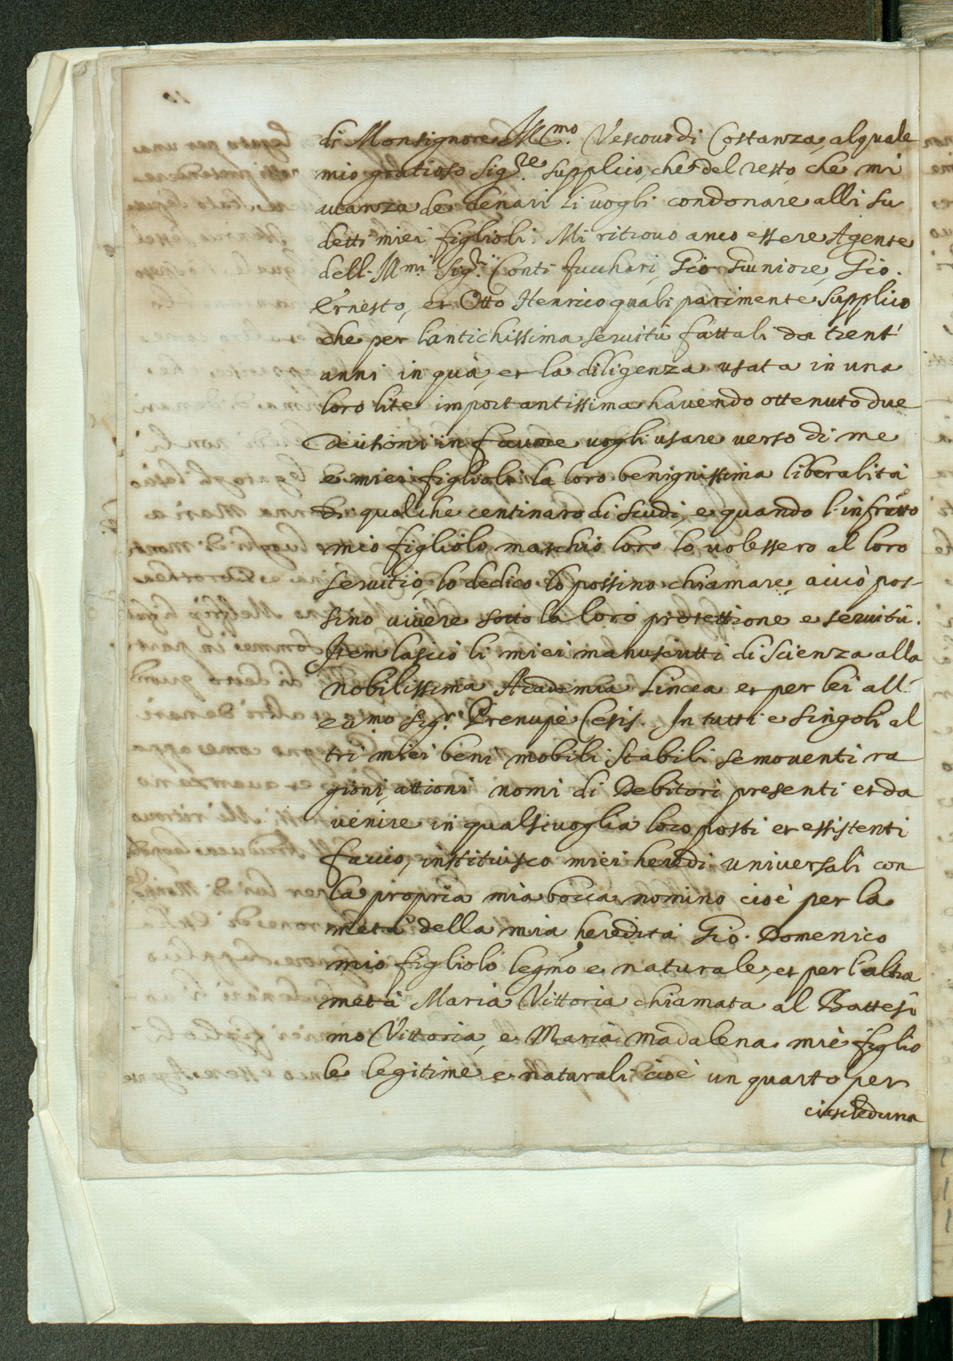 di Monsignore Ill.mo Vescouo di Costanza, al quale
mio gratioso Sig.re supplico, che del resto, che mi
auanza de denari li vogli condonare alli su
detti miei figlioli. Mi ritrouo anco essere Agente
dell' Ill.mi Sig.ri Conti Fucchari, Gio Giuniore, Gio.
Ernesto, et Otto Henrico quali parimente supplico
che per l'antichissima seruitù fattali da trent'
anni in quà, et la diligenza usata in una
loro lite importantissima hauendo ottenuto due
Decisioni in fauore vogli usare verso di me
e miei figlioli la loro benignissima liberalità
di qualche centinaro di scudi, e quando l'infrãtto
mio figliolo maschio loro lo uolessero al loro
seruitio, lo dedico lo possino chiamare, acciò pos-
sino uiuere sotto la loro protettione e seruitù.
Item lascio li miei manuscritti di Scienza alla
nobilissima Academia Lincea et per lei all'
ecc.mo sig.r Prencipe Cesis. In tutti e singoli al
tri miei beni mobili stabili semouenti ra
gioni, attioni nomi di Debitori presenti et da
venire in qualsiuoglia loco posti et essistenti
faccio, instituisco miei heredi universali con
la propria mia bocca nomino cioè per la
metà della mia heredità Gio. Domenico
mio figliolo legmo e naturale, et per l'altra
metà Maria Vittoria chiamata al Battesi
mo Vittoria, e Maria Madalena mie figlio
le legitime e naturali cioè un quarto per
ciascheduna